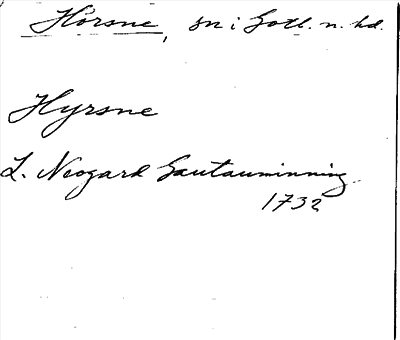 Hörsne, sn i Gotl. n. hd.
Hyrsne
L. Neogard Gautauminning
1732